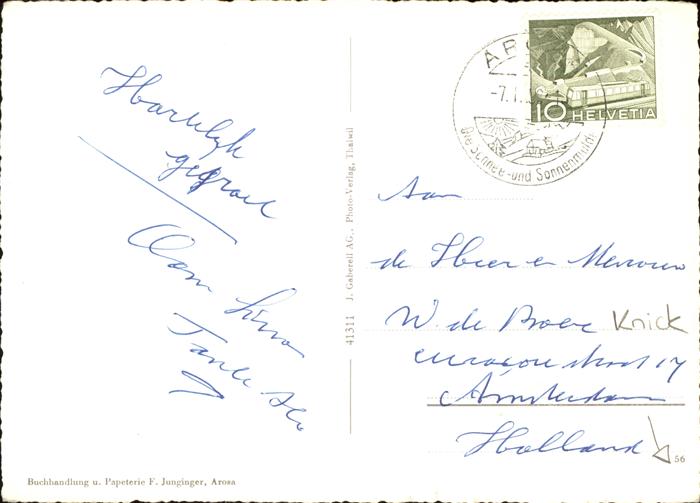 Hartelijk
gegroet
Oom
Tante
41311 J. Gaberell AG., Photo-Verlag, Thalwil
Buchhandlung u. Papeterie F. Junginger, Arosa
AROSA
-7.1.
Die Schnee- und Sonnenmulde
10 HELVETIA
Aan
de Heer en Mevrouw
W. de Boer Knick
straat 17
Amsterdam
Holland
56